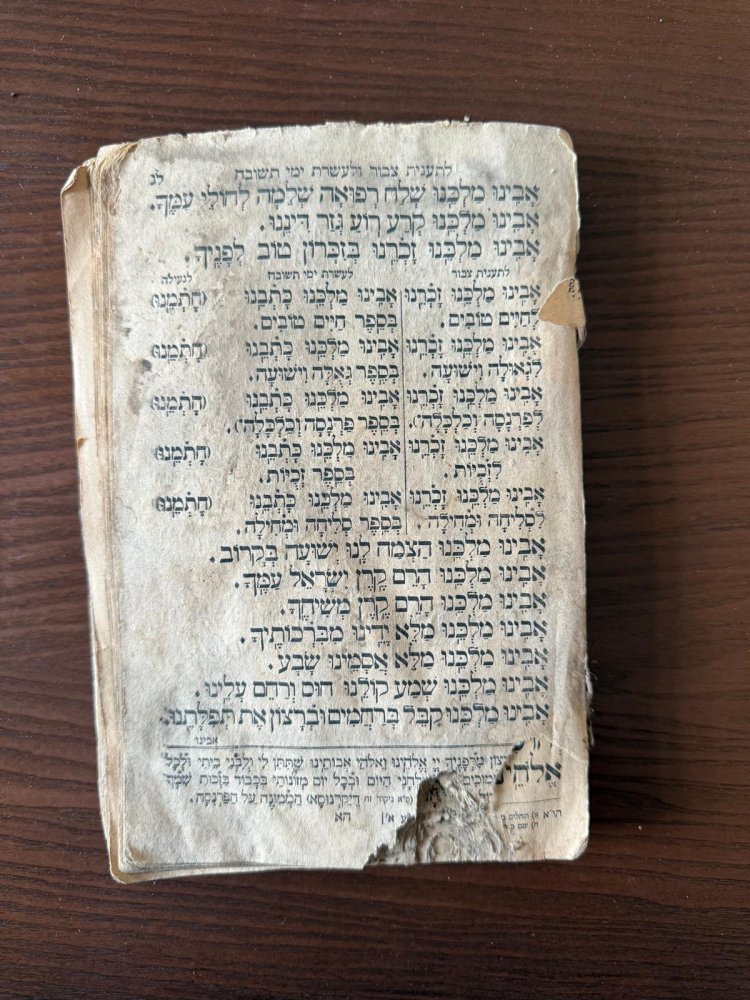 לתענית צבור ולעשרת ימי תשובה לג
אָבִינוּ מַלְכֵּנוּ שְׁלַח רְפוּאָה שְׁלֵמָה לְחוֹלֵי עַמֶּךָ.
אָבִינוּ מַלְכֵּנוּ קְרַע רוֹעַ גְּזַר דִּינֵנוּ.
אָבִינוּ מַלְכֵּנוּ זָכְרֵנוּ בְּזִכְרוֹן טוֹב לְפָנֶיךָ.
לתענית צבור לעשרת ימי תשובה לנעילה
אָבִינוּ מַלְכֵּנוּ זָכְרֵנוּ אָבִינוּ מַלְכֵּנוּ כָּתְבֵנוּ (חָתְמֵנוּ)
לְחַיִּים טוֹבִים. בְּסֵפֶר חַיִּים טוֹבִים.
אָבִינוּ מַלְכֵּנוּ זָכְרֵנוּ אָבִינוּ מַלְכֵּנוּ כָּתְבֵנוּ (חָתְמֵנוּ)
לִגְאֻלָּה וִישׁוּעָה. בְּסֵפֶר גְּאֻלָּה וִישׁוּעָה.
אָבִינוּ מַלְכֵּנוּ זָכְרֵנוּ אָבִינוּ מַלְכֵּנוּ כָּתְבֵנוּ (חָתְמֵנוּ)
לְפַרְנָסָה (וְכַלְכָּלָה). בְּסֵפֶר פַּרְנָסָה (וְכַלְכָּלָה).
אָבִינוּ מַלְכֵּנוּ זָכְרֵנוּ אָבִינוּ מַלְכֵּנוּ כָּתְבֵנוּ (חָתְמֵנוּ)
לִזְכִיּוֹת. בְּסֵפֶר זְכִיּוֹת.
אָבִינוּ מַלְכֵּנוּ זָכְרֵנוּ אָבִינוּ מַלְכֵּנוּ כָּתְבֵנוּ (חָתְמֵנוּ)
לִסְלִיחָה וּמְחִילָה. בְּסֵפֶר סְלִיחָה וּמְחִילָה.
אָבִינוּ מַלְכֵּנוּ הַצְמַח לָנוּ יְשׁוּעָה בְּקָרוֹב.
אָבִינוּ מַלְכֵּנוּ הָרֵם קֶרֶן יִשְׂרָאֵל עַמֶּךָ.
אָבִינוּ מַלְכֵּנוּ הָרֵם קֶרֶן מְשִׁיחֶךָ.
אָבִינוּ מַלְכֵּנוּ מַלֵּא יָדֵינוּ מִבִּרְכוֹתֶיךָ.
אָבִינוּ מַלְכֵּנוּ מַלֵּא אֲסָמֵינוּ שָׂבָע.
אָבִינוּ מַלְכֵּנוּ שְׁמַע קוֹלֵנוּ חוּס וְרַחֵם עָלֵינוּ.
אָבִינוּ מַלְכֵּנוּ קַבֵּל בְּרַחֲמִים וּבְרָצוֹן אֶת תְּפִלָּתֵנוּ.
אבינו
רָצוֹן מִלְּפָנֶיךָ יְיָ אֱלֹהֵינוּ וֵאלֹהֵי אֲבוֹתֵינוּ שֶׁתִּתֵּן לִי וְלִבְנֵי בֵיתִי וּלְכָל
אֱלֹהֵינוּ הַיּוֹם וּבְכָל יוֹם מְזוֹנוֹתַי בְּכָבוֹד בִּזְכוּת שִׁמְךָ
(ס״א ניקוד זה דִּיקַרְנוּסָא) הַמְמֻנֶּה עַל הַפַּרְנָסָה.
א) תהלים האֿ